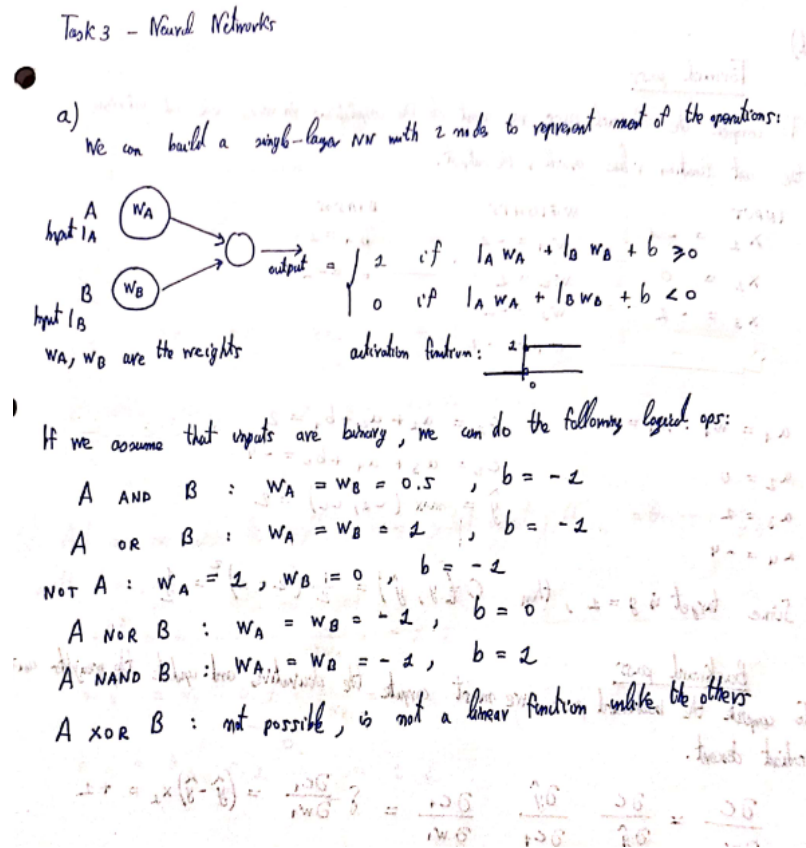 Task 3 - Neural Networks
a)
We can build a single-layer NN with 2 nodes to represent most of the operations:
A
Input I_A
W_A
B
Input I_B
W_B
output = { 1 if I_A W_A + I_B W_B + b ≥ 0
0 if I_A W_A + I_B W_B + b < 0
W_A, W_B are the weights
activation function: 1
0
If we assume that inputs are binary, we can do the following logical ops:
A AND B : W_A = W_B = 0.5 , b = -1
A OR B : W_A = W_B = 1 , b = -1
NOT A : W_A = 1 , W_B = 0 , b = -1
A NOR B : W_A = W_B = -1 , b = 0
A NAND B : W_A = W_B = -1 , b = 1
A XOR B : not possible, is not a linear function unlike the others